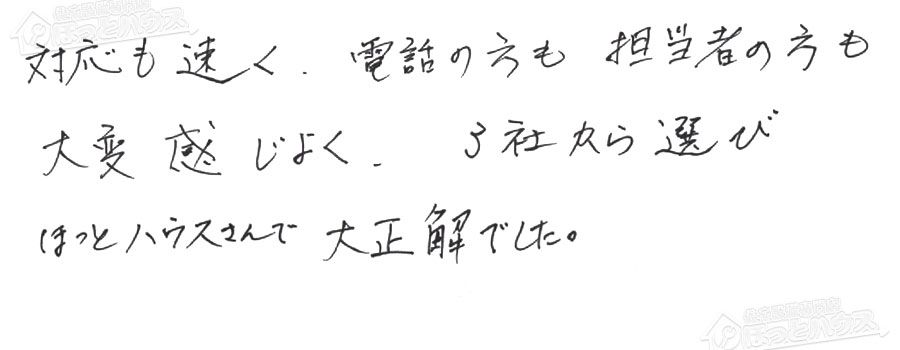 対応も速く、電話の方も 担当者の方も
大変 感じよく、 3社から選び
ほっとハウスさんで 大正解でした。
ほっとハウス